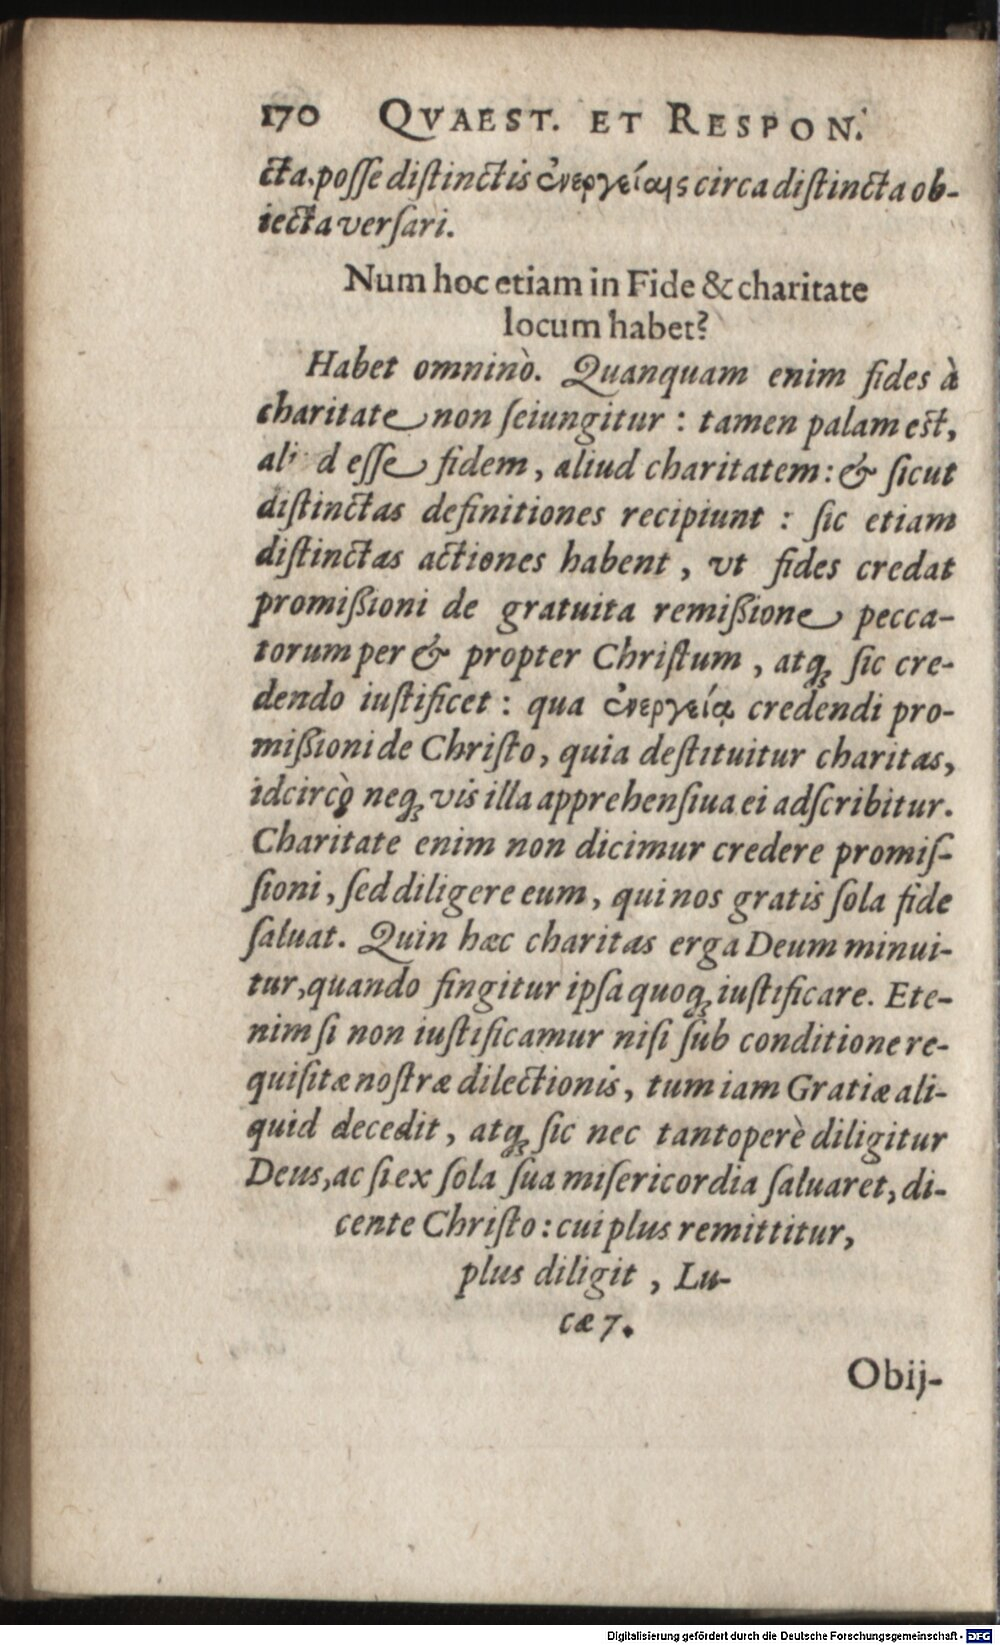 170 QVAEST. ET RESPON.
cta, posſe diſtinctis ἐνεργείαις circa diſtincta ob-
iecta verſari.
Num hoc etiam in Fide & charitate
locum habet?
Habet omninò. Quanquam enim fides à
charitate non ſeiungitur : tamen palam eſt,
ali d eſſe fidem, aliud charitatem: & ſicut
diſtinctas definitiones recipiunt : ſic etiam
diſtinctas actiones habent, vt fides credat
promißioni de gratuita remißione pecca-
torum per & propter Chriſtum, atq; ſic cre-
dendo iuſtificet : qua ἐνεργείᾳ credendi pro-
mißioni de Chriſto, quia deſtituitur charitas,
idcircò neq; vis illa apprehenſiua ei adſcribitur.
Charitate enim non dicimur credere promiſ-
ſioni, ſed diligere eum, qui nos gratis ſola fide
ſaluat. Quin hæc charitas erga Deum minui-
tur, quando fingitur ipſa quoq; iuſtificare. Ete-
nim ſi non iuſtificamur niſi ſub conditione re-
quiſitæ noſtræ dilectionis, tum iam Gratiæ ali-
quid decedit, atq; ſic nec tantoperè diligitur
Deus, ac ſi ex ſola ſua miſericordia ſaluaret, di-
cente Chriſto: cui plus remittitur,
plus diligit, Lu-
cæ 7.
Obij-
Digitalisierung gefördert durch die Deutsche Forschungsgemeinschaft - DFG